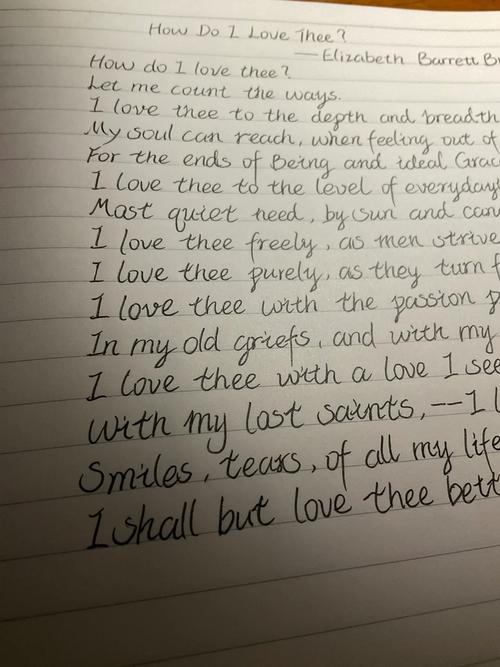 How Do I Love Thee?
—Elizabeth Barrett Br
How do I love thee?
Let me count the ways.
I love thee to the depth and breadth
My soul can reach, when feeling out of
For the ends of Being and ideal Grac
I love thee to the level of everyday'
Mast quiet need, by sun and can
I love thee freely, as men strive
I love thee purely, as they turn f
I love thee with the passion p
In my old griefs, and with my
I love thee with a love I see
with my lost saints,--I l
Smiles, tears, of all my life
I shall but love thee bett